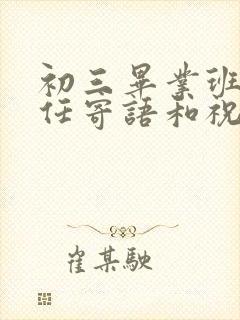 初三畢業班
任寄語和祝
崔某駛